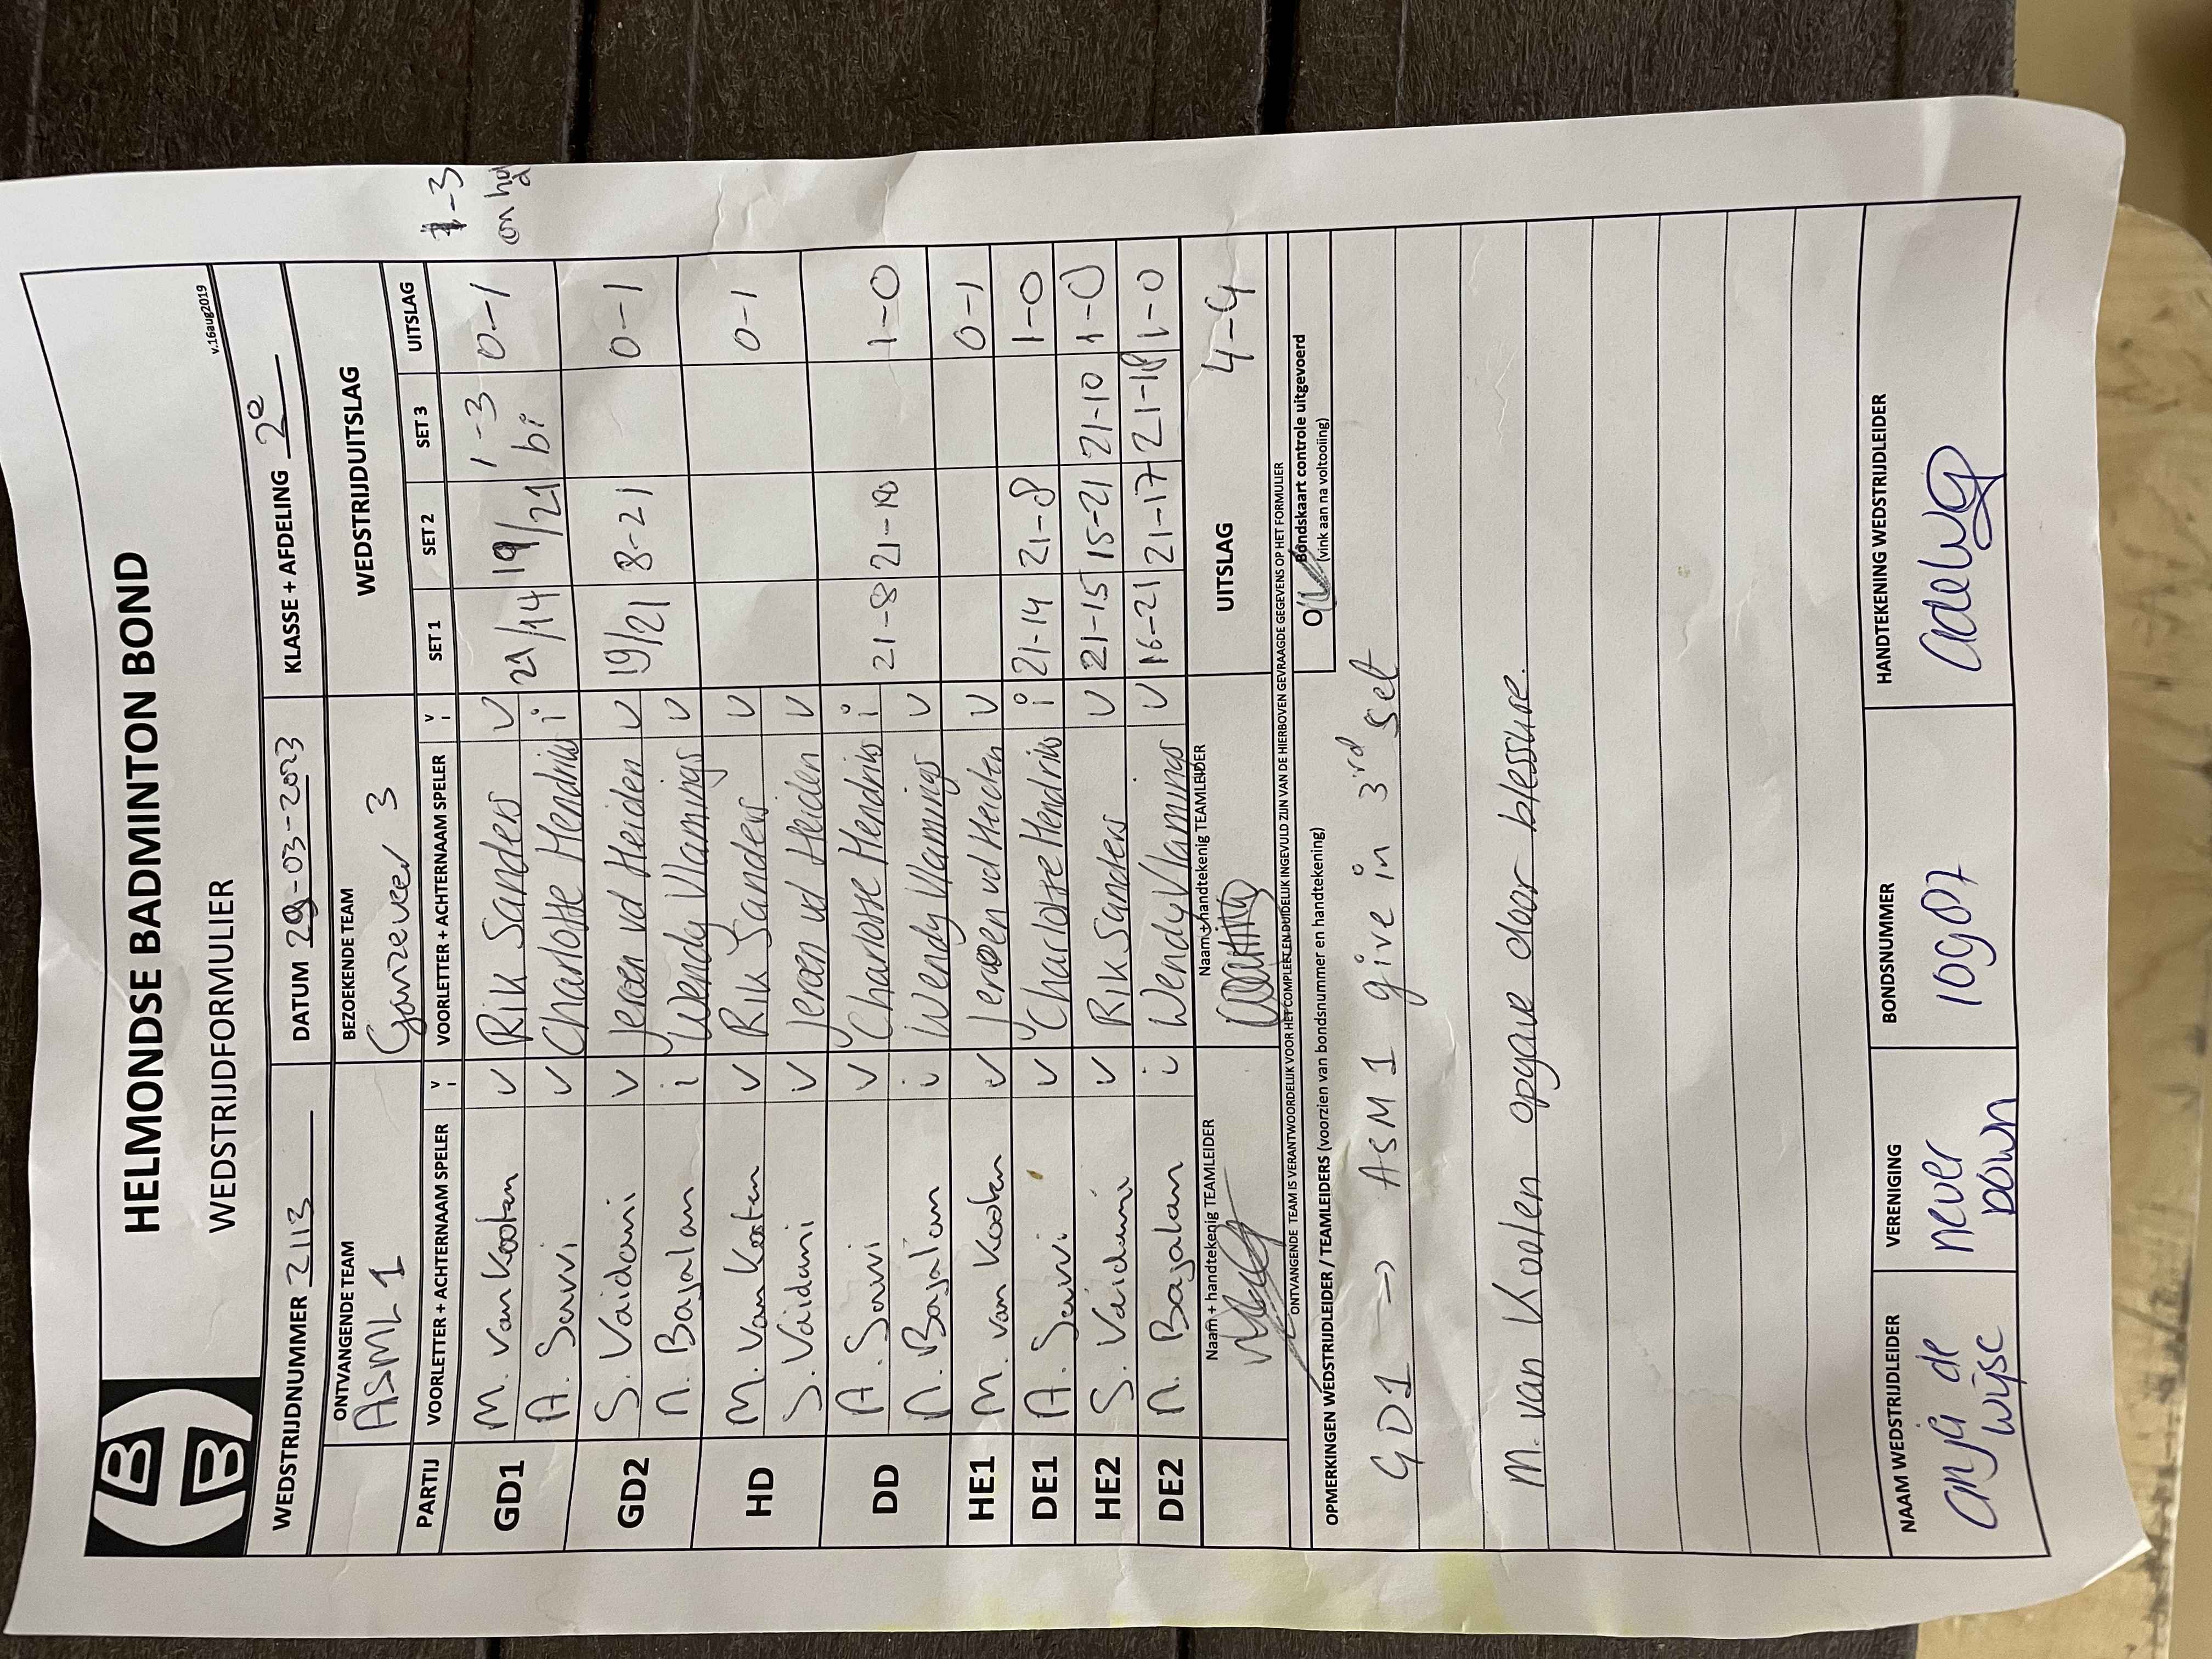 HELMONDSE BADMINTON BOND
WEDSTRIJDFORMULIER
v.16aug2019
WEDSTRIJDNUMMER 2113 DATUM 29-03-2023 KLASSE + AFDELING 2e
ONTVANGENDE TEAM BEZOEKENDE TEAM WEDSTRIJDUITSLAG
ASML 1 Ganzeveer 3
PARTIJ VOORLETTER + ACHTERNAAM SPELER V I VOORLETTER + ACHTERNAAM SPELER V I SET 1 SET 2 SET 3 UITSLAG
1-3
on hold
GD1 M. van Kooten v Rik Sanders v 21/14 19/21 1-3 0-1
A. Savvi v Charlotte Hendriks i bi
GD2 S. Vaidani v Jeroen vd Heiden v 19/21 8-21 0-1
N. Bajalan i Wendy Vlamings v
HD M. van Kooten v Rik Sanders v 0-1
S. Vaidani v Jeroen vd Heiden v
DD A. Savvi v Charlotte Hendriks i 21-8 21-10 1-0
N. Bajalan i Wendy Vlamings v
HE1 M. van Kooten v Jeroen vd Heiden v 0-1
DE1 A. Savvi v Charlotte Hendriks i 21-14 21-8 1-0
HE2 S. Vaidani v Rik Sanders v 21-15 15-21 21-10 1-0
DE2 N. Bajalan i Wendy Vlamings v 16-21 21-17 21-18 1-0
Naam + handtekenig TEAMLEIDER Naam + handtekenig TEAMLEIDER UITSLAG 4-4
ONTVANGENDE TEAM IS VERANTWOORDELIJK VOOR HET COMPLEET EN DUIDELIJK INGEVULD ZIJN VAN DE HIERBOVEN GEVRAAGDE GEGEVENS OP HET FORMULIER
OPMERKINGEN WEDSTRIJDLEIDER / TEAMLEIDERS (voorzien van bondsnummer en handtekening) O Bondskaart controle uitgevoerd
(vink aan na voltooiing)
GD1 → ASM 1 give in 3rd set
M. van Kooten opgave door blessure.
NAAM WEDSTRIJDLEIDER VERENIGING BONDSNUMMER HANDTEKENING WEDSTRIJDLEIDER
anja de never 10907
wijse down